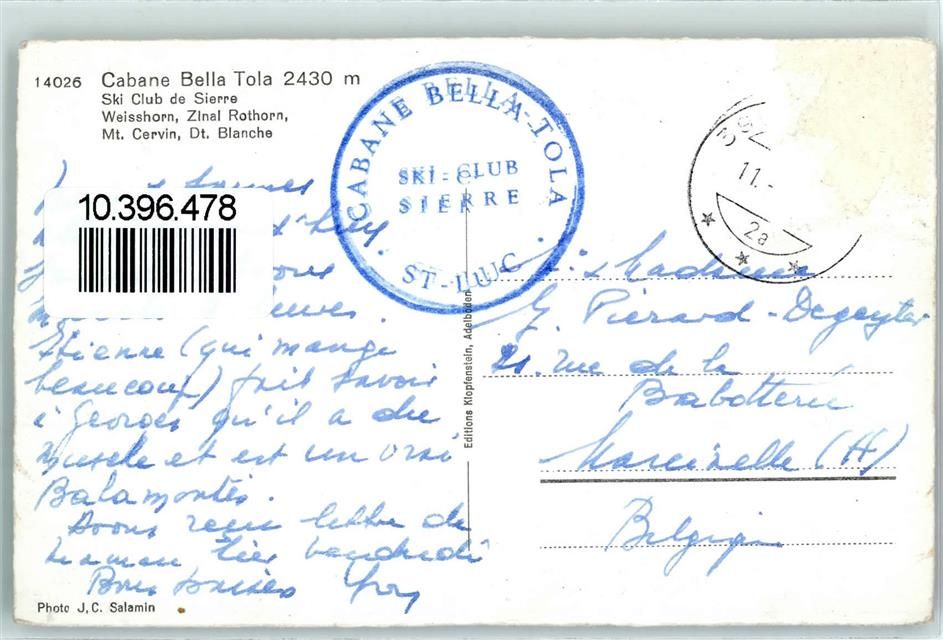 14026 Cabane Bella Tola 2430 m
Ski Club de Sierre
Weisshorn, Zinal Rothorn,
Mt. Cervin, Dt. Blanche
CABANE BELLA-TOLA
SKI-CLUB
SIERRE
ST-LUC
11.
2a
10.396.478
Etienne (qui mange
beaucoup) fait savoir
à Georges qu'il a du
muscle et est un vrai
Balamontes.
Avons reçu lettre de
maman hier vendredi
Bons baisers
Editions Klopfenstein, Adelboden
Madame
G. Pierard-Degeyter
21. rue de la
Babotterie
Marcinelle (H)
Belgique
Photo J.C. Salamin